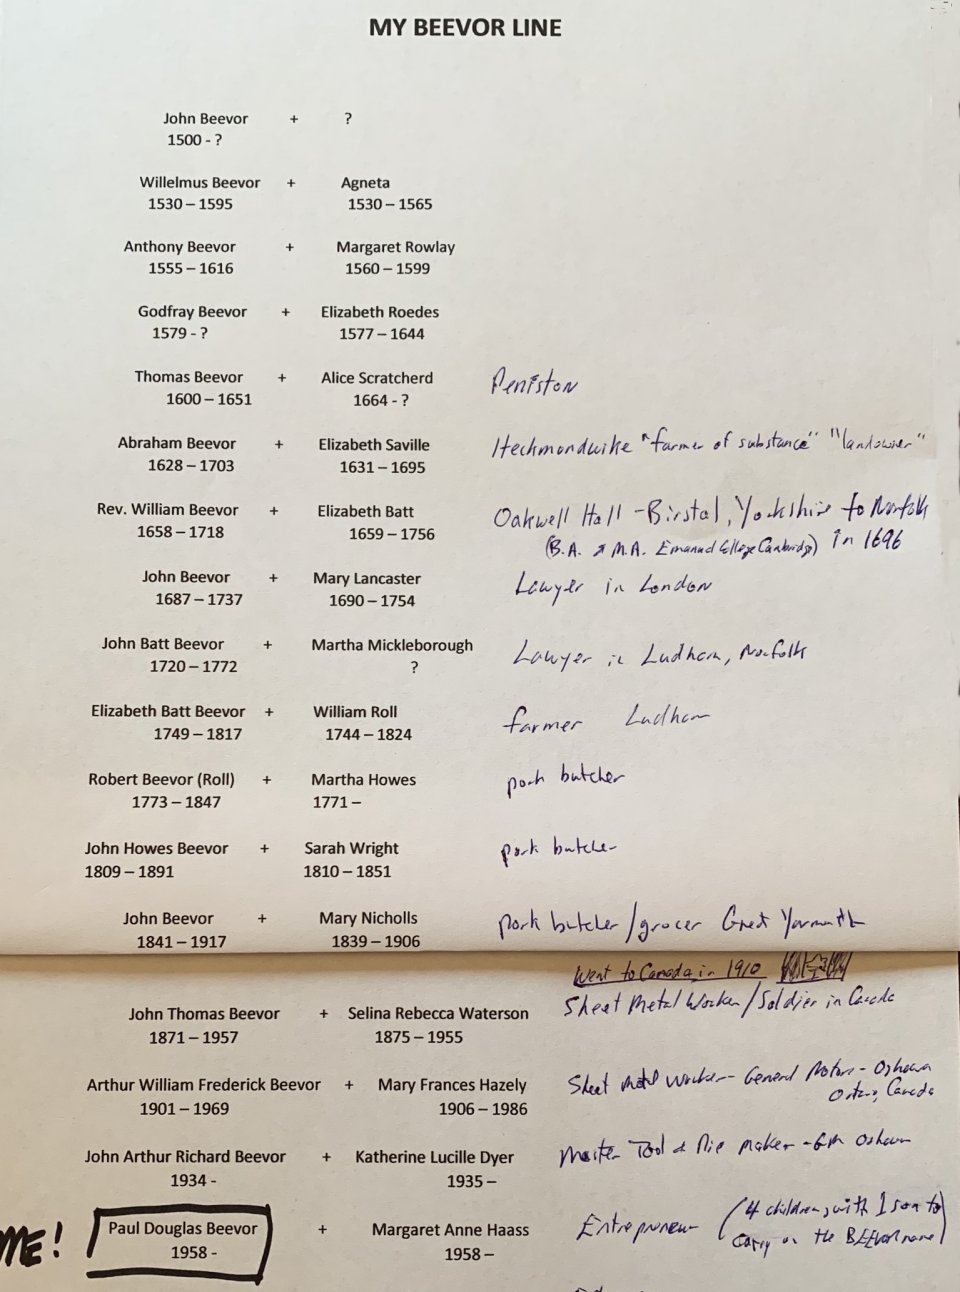 MY BEEVOR LINE
John Beevor + ?
1500 - ?
Willelmus Beevor + Agneta
1530 – 1595 1530 – 1565
Anthony Beevor + Margaret Rowlay
1555 – 1616 1560 – 1599
Godfray Beevor + Elizabeth Roedes
1579 - ? 1577 – 1644
Thomas Beevor + Alice Scratcherd Peniston
1600 – 1651 1664 - ?
Abraham Beevor + Elizabeth Saville Heckmondwike "farmer of substance" "landowner"
1628 – 1703 1631 – 1695
Rev. William Beevor + Elizabeth Batt Oakwell Hall - Birstal, Yorkshire to Norfolk
1658 – 1718 1659 – 1756 (B.A. & M.A. Emanuel College Cambridge) in 1696
John Beevor + Mary Lancaster Lawyer in London
1687 – 1737 1690 – 1754
John Batt Beevor + Martha Mickleborough Lawyer in Ludham, Norfolk
1720 – 1772 ?
Elizabeth Batt Beevor + William Roll farmer Ludham
1749 – 1817 1744 – 1824
Robert Beevor (Roll) + Martha Howes pork butcher
1773 – 1847 1771 –
John Howes Beevor + Sarah Wright pork butcher
1809 – 1891 1810 – 1851
John Beevor + Mary Nicholls pork butcher/grocer Great Yarmouth
1841 – 1917 1839 – 1906
Went to Canada in 1910
John Thomas Beevor + Selina Rebecca Waterson Sheet Metal Worker/Soldier in Canada
1871 – 1957 1875 – 1955
Arthur William Frederick Beevor + Mary Frances Hazely Sheet Metal Worker - General Motors - Oshawa
1901 – 1969 1906 – 1986 Ontario, Canada
John Arthur Richard Beevor + Katherine Lucille Dyer Master Tool & Die Maker - GM Oshawa
1934 - 1935 –
ME! Paul Douglas Beevor + Margaret Anne Haass Entrepreneur (4 children, with 1 son to
1958 - 1958 – carry on the BEEVOR name)